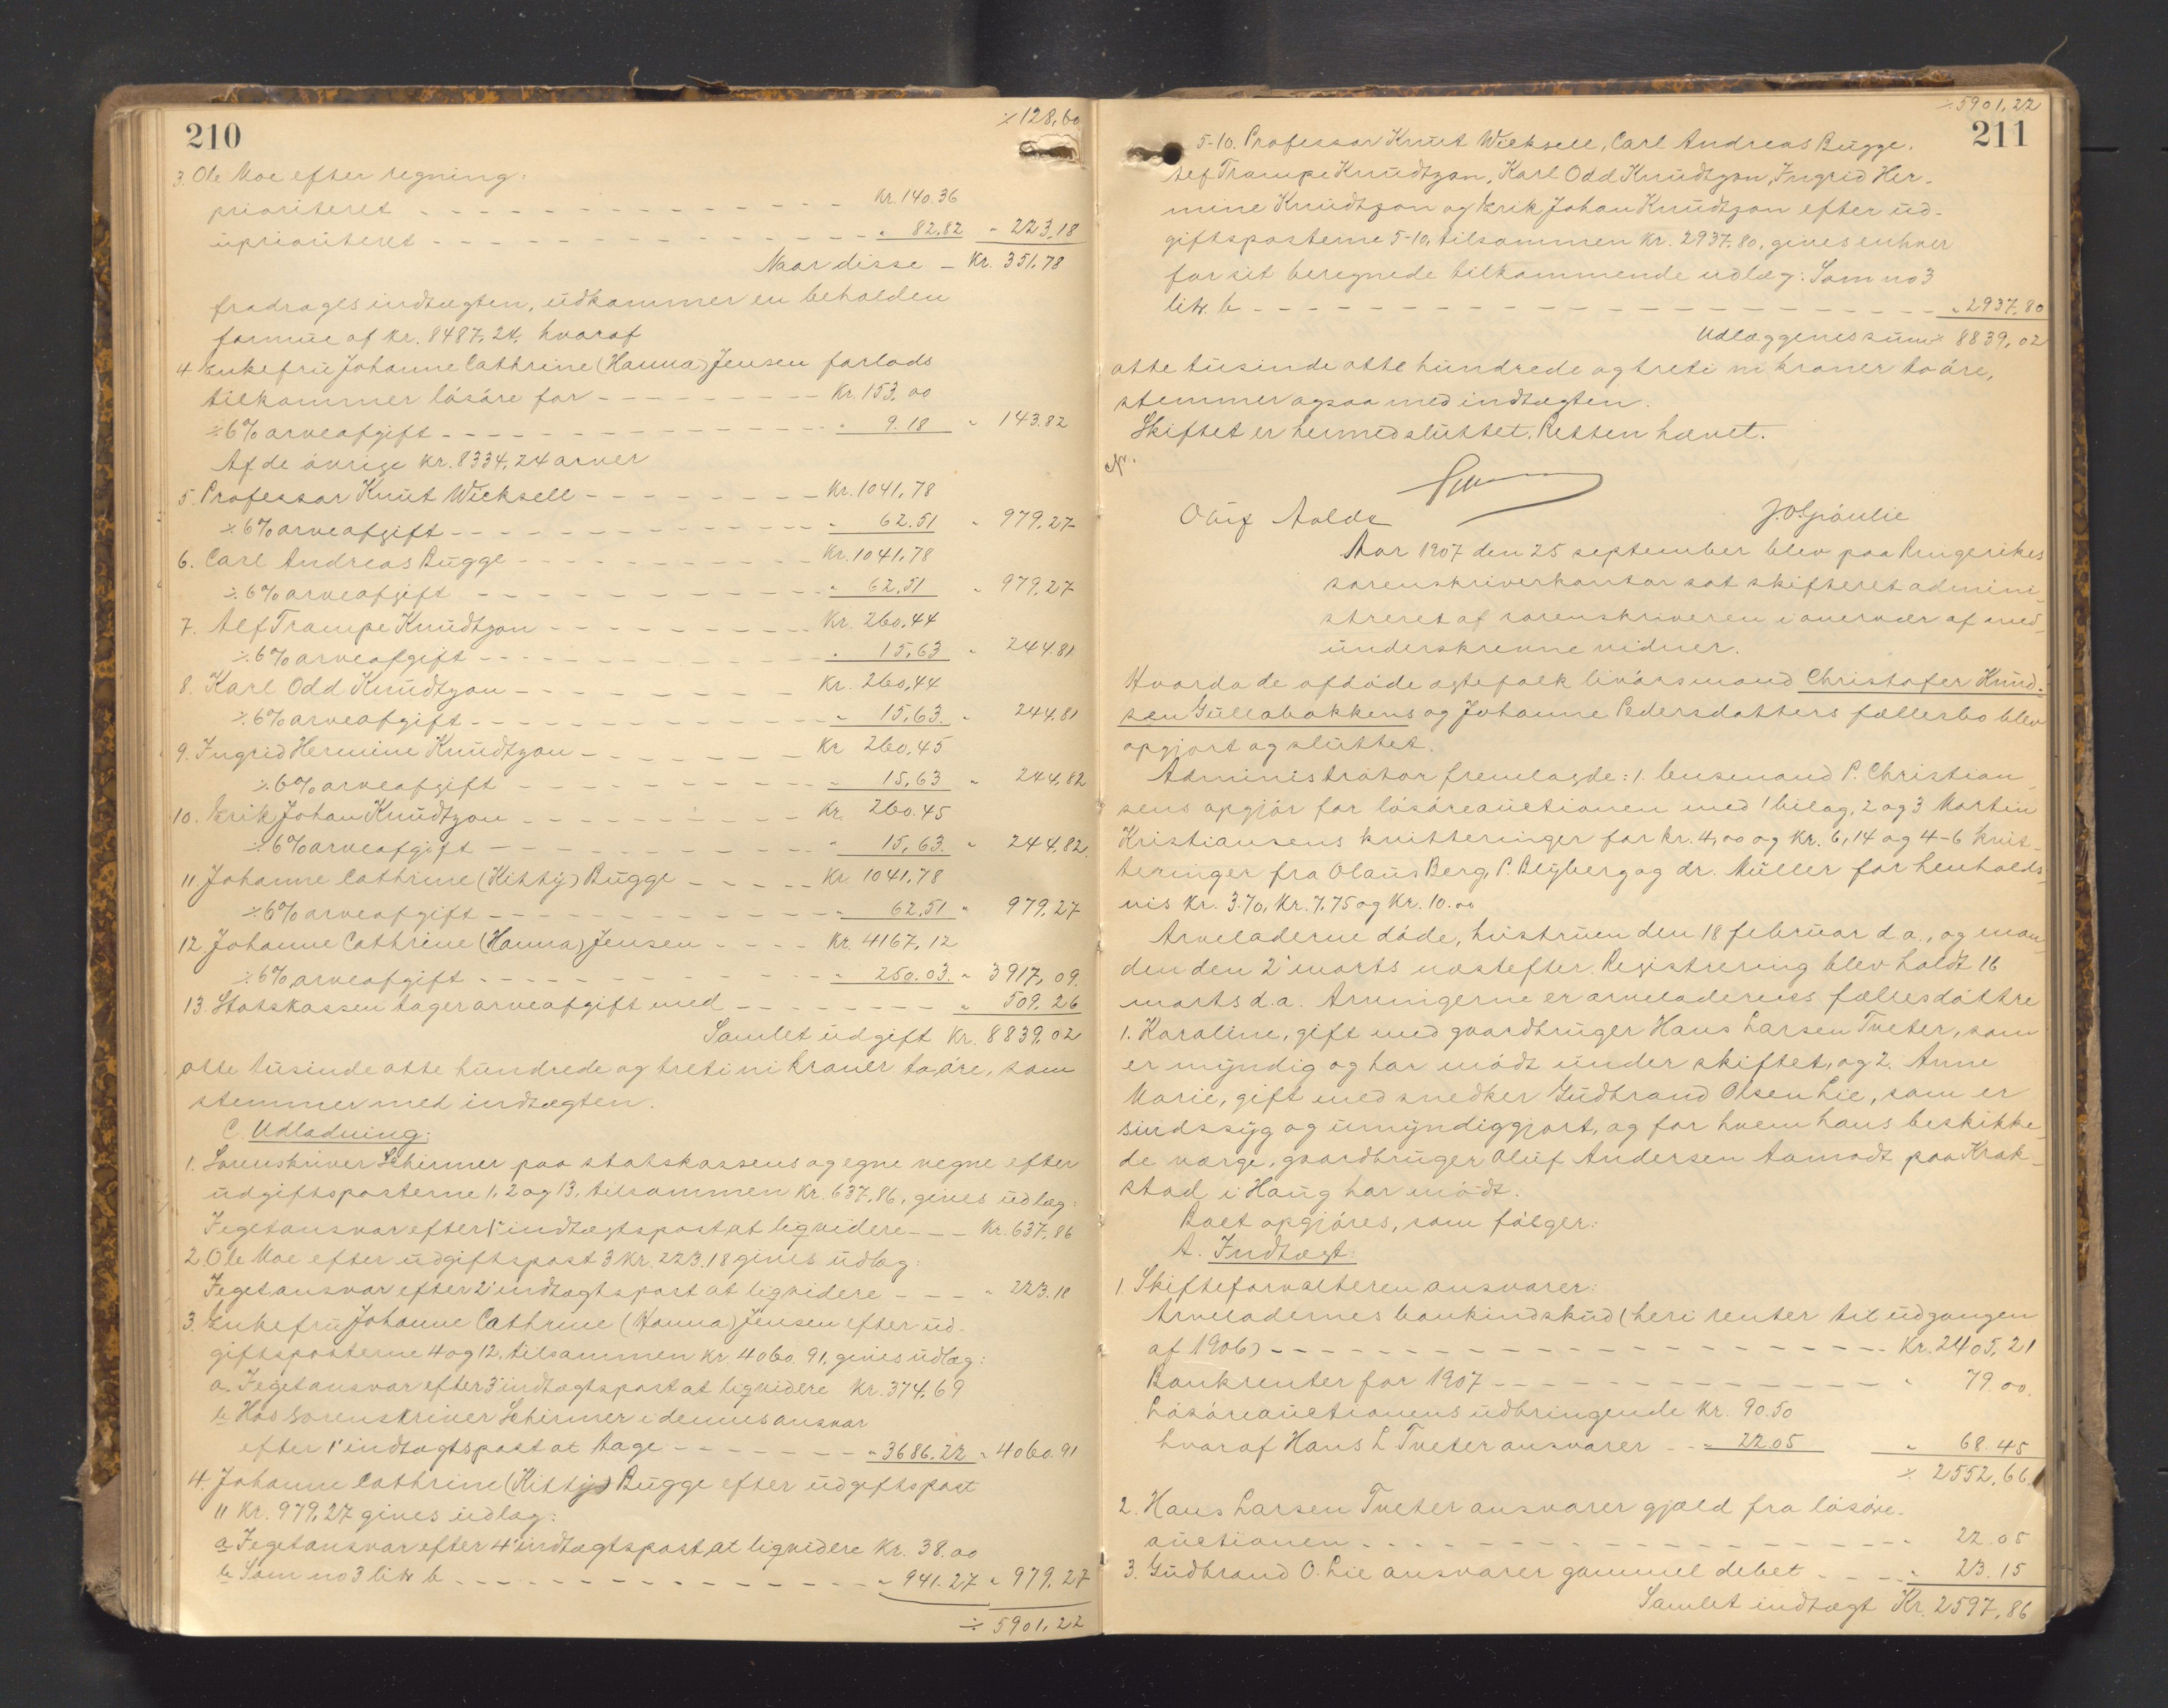 210
⁒ 128,60
3. Ole Moe efter regning:
prioriteret - - - Kr. 140.36
uprioriteret - - - " 82,82 " 223,18
Naar disse - Kr. 351,78
fradrages indtægten, udkommer en beholden
formue af kr. 8487,24, hvoraf
4. Enkefru Johanne Cathrine (Hanna) Jensen forlods
tilkommer løsøre for - - - Kr. 153,00
⁒ 6% arveafgift - - - " 9.18 " 143.82
Af de øvrige kr. 8334,24 arver
5. Professor Knut Wicksell - - - Kr. 1041,78
⁒ 6% arveafgift - - - " 62,51 " 979,27
6. Carl Andreas Bugge - - - Kr. 1041,78
⁒ 6% arveafgift - - - " 62,51 " 979,27
7. Alf Trampe Knudtzon - - - Kr. 260,44
⁒ 6% arveafgift - - - " 15,63 " 244.81
8. Karl Odd Knudtzon - - - Kr. 260,44
⁒ 6% arveafgift - - - " 15,63. " 244,81
9. Ingrid Hermine Knudtzon - - - Kr 260,45
⁒ 6% arveafgift - - - " 15,63 " 244,82
10. Erik Johan Knudtzon - - - Kr. 260.45
⁒ 6% arveafgift - - - " 15,63. " 244,82.
11. Johanne Cathrine (Kitty) Bugge - - - Kr. 1041,78
⁒ 6% arveafgift - - - " 62,51 " 979,27
12. Johanne Cathrine (Hanna) Jensen - - - Kr. 4167,12
⁒ 6% arveafgift - - - " 250.03. " 3917,09.
13. Statskassen tager arveafgift med - - - " 509,26
Samlet udgift Kr. 8839,02
otte tusinde otte hundrede og treti ni kroner to øre, som
stemmer med indtægten.
C. Udlodning:
1. Sorenskriver Schirmer paa statskassens og egne vegne efter
udgiftsposterne 1, 2 og 13, tilsammen Kr. 637,86, gives udlæg:
I eget ansvar efter 1' indtægtspost at liqvidere - - - Kr. 637,86
2. Ole Moe efter udgiftspost 3 Kr. 223.18 gives udlæg:
I eget ansvar efter 2' indtægtspost at liqvidere - - - " 223.18
3. Enkefru Johanne Cathrine (Hanna) Jensen efter ud-
giftsposterne 4 og 12, tilsammen Kr 4060.91, gives udlæg:
a. I eget ansvar efter 3' indtægtspost at liqvidere Kr. 374,69
b. Hos sorenskriver Schirmer i dennes ansvar
efter 1' indtægtspost at tage - - - " 3686,22 " 4060.91
4. Johanne Cathrine (Kitty) Bugge efter udgiftspost
11 Kr. 979,27 gives udlæg:
a. I eget ansvar efter 4' indtægtspost at liqvidere Kr. 38.00
b. Som no 3 litr. b - - - " 941.27 " 979,27
⁒ 5901,22
⁒ 5901,22
211
5-10. Professor Knut Wicksell, Carl Andreas Bugge,
Alf Trampe Knudtzon, Karl Odd Knudtzon, Ingrid Her-
mine Knudtzon og Erik Johan Knudtzon efter ud-
giftsposterne 5-10, tilsammen Kr. 2937.80, gives enhver
for sit beregnede tilkommende udlæg: Som no 3
litr. b - - - " 2937,80
Udlæggenes sum ⁒ 8839,02
otte tusinde otte hundrede og treti ni kroner to øre,
stemmer ogsaa med indtægten.
Skiftet er hermed sluttet. Retten hævet.
Oluf Aolds
J. O. Gjøulie
Aar 1907 den 25 september blev paa Ringerikes
sorenskriverkontor sat skifteret admini-
streret af sorenskriveren i overvær af med-
underskrevne vidner.
Hvorda de afdøde ægtefolk livøresmand Christofer Knud-
sen Gullabakkens og Johanne Pedersdatters fællesbo blev
opgjort og sluttet.
Administrator fremlagde: 1. lensmand P. Christian-
sens opgjør for løsøreauctionen med 1 bilag, 2 og 3 Martin
Kristiansens kvitteringer for kr. 4,00 og Kr. 6,14 og 4-6 kvit-
teringer fra Olaus Berg, P. Blyberg og dr. Müller for henholds-
vis Kr. 3.70, Kr. 7.75 og Kr. 10.00
Arveladerne døde, hustruen den 18 februar d.a., og man-
den den 2' marts næstefter. Registrering blev holdt 16
marts d.a. Arvingerne er arveladernes fællesdøttre
1. Karoline, gift med gaardbruger Hans Larsen Tveter, som
er myndig og har mødt under skiftet, og 2. Anne
Marie, gift med snedker Gudbrand Olsen Lie, som er
sindssyg og umyndiggjort, og for hvem hans beskikke-
de værge, gaardbruger Oluf Andersen Aamodt paa Krak-
stad i Haug har mødt.
Boet opgjøres, som følger:
A. Indtægt:
1. Skifteforvalteren ansvarer:
Arveladernes bankindskud (heri renter til udgangen
af 1906) - - - Kr. 2405,21
Bankrenter for 1907 - - - " 79.00.
Løsøreauctionens udbringende Kr. 90.50
hvoraf Hans L Tveter ansvarer - - " 22.05 " 68.45
⁒ 2552,66.
2. Hans Larsen Tveter ansvarer gjæld fra løsøre-
auctionen - - - " 22.05
3. Gudbrand O. Lie ansvarer gammel debet - - - " 23.15
Samlet indtægt Kr. 2597,86